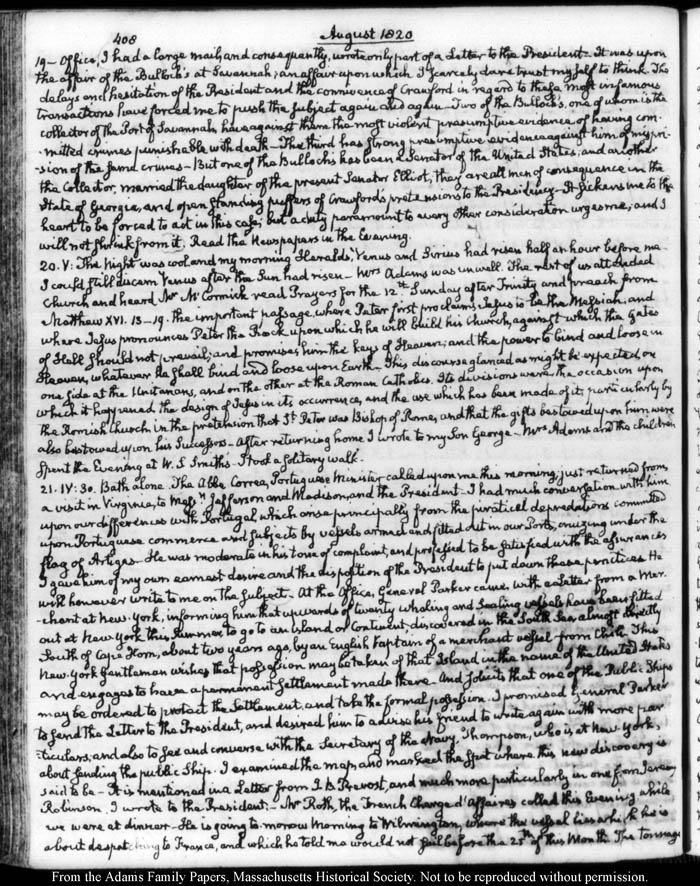 408
August 1820
19 — Office, I had a large mail, and consequently, wrote only part of a Letter to the President. It was upon
the affair of the Bulloch's at Savannah; an affair upon which I scarcely dare trust myself to think. The
delays and hesitation of the President and the connivence of Crawford in regard to these most infamous
transactions have forced me to push the subject again and again. Two of the Bullock's, one of whom is the
collector of the Port of Savannah, have against them the most violent presumptive evidence of having com-
-mitted crimes punishable with death — The third has strong presumptive evidence against him of mispri-
-sion of the same crimes — But one of the Bullochs has been a Senator of the United States, and another
the Collector, married the daughter of the present Senator Elliot; they are all men of consequence in the
State of Georgia, and open standing puffers of Crawford's pretensions to the Presidency. It sickens me to the
heart to be forced to act in this case; but a duty paramount to every other consideration urges me, and I
will not shrink from it. Read the Newspapers in the Evening.
20. V: The night was cool and my morning Heralds, Venus and Sirius had risen half an hour before me.
I could still discern Venus after the Sun had risen — Mrs Adams was unwell. The rest of us attended
Church and heard Mr McCormick read Prayers for the 12th Sunday after Trinity and preach from
Matthew XVI. 13 – 19. the important passage, where Peter first proclaims Jesus to be the Messiah, and
where Jesus pronounces Peter the Rock upon which he will build his Church, against which the gates
of Hell should not prevail; and promises him the keys of Heaven; and the power to bind and loose in
Heaven, whatever he shall bind and loose upon Earth — This discourse glanced as might be expected, on
one side at the Unitarians, and on the other at the Roman Catholics. Its divisions were the occasion upon
which it happened, the design of Jesus in its occurrence, and the use which has been made of it; particularly by
the Romish Church in the pretension that St. Peter was Bishop of Rome, and that the gifts bestowed upon him, were
also bestowed upon his Successors — After returning home I wrote to my Son George — Mrs Adams and the children
spent the Evening at W. S. Smith's. I took a solitary walk.
21. IV: 30. Bath alone. The Abbe Correa, Portuguese Minister called upon me this morning; just returned from
a visit in Virginia, to Messrs Jefferson and Madison, and the President. I had much conversation with him
upon our differences with Portugal, which arise principally from the piratical depredations committed
upon Portuguese commerce and subjects by vessels armed and fitted out in our Ports, cruizing under the
flag of Artigas. He was moderate in his tone of complaint, and professed to be satisfied with the assurances
I gave him of my own earnest desire and the disposition of the President to put down these practices. He
will however write to me on the subject. At the Office, General Parker came, with a Letter from a Mer-
-chant at New-York, informing him that upwards of twenty whaling and Sealing vessels have been fitted
out at New York this Summer, to go to an Island or Continent, discovered in the South Sea almost directly
South of Cape Horn, about two years ago, by an English Captain of a merchant vessel from Chili. This
New-York Gentleman wishes that possession may be taken of that Island in the name of the United States
and engages to have a permanent settlement made there. And solicits that one of the Public Ships
may be ordered to protect the Settlement, and take the formal possession. I promised General Parker
to send the Letter to the President, and desired him to advise his friend to write again with more par-
-ticulars, and also to see and converse with the Secretary of the Navy, Thompson, who is at New York,
about sending the public Ship. I examined the map, and marked the spot where this new discovery is
said to be — It is mentioned in a Letter from J. B. Prevost, and much more particularly in one from Jeremy
Robinson. I wrote to the President. — Mr Roth, the French Chargé d'Affaires called this Evening while
we were at dinner — He is going to-morrow Morning to Wilmington, where the vessel lies which he is
about despatching to France, and which he told me would not sail before the 25th of this Month. The tonnage
From the Adams Family Papers, Massachusetts Historical Society. Not to be reproduced without permission.